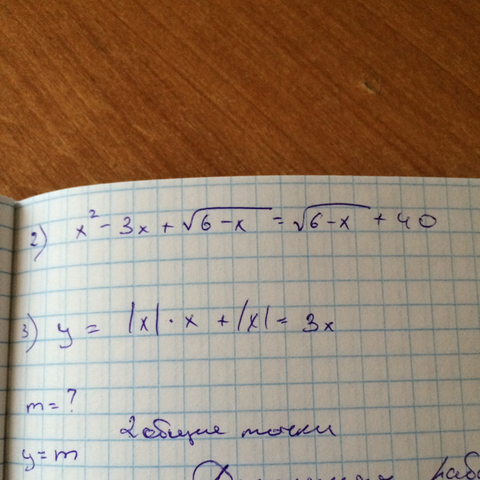 2) x² - 3x + √6-x = √6-x + 40
3) y = |x| · x + |x| = 3x
m = ?
2 общие точки
y = m